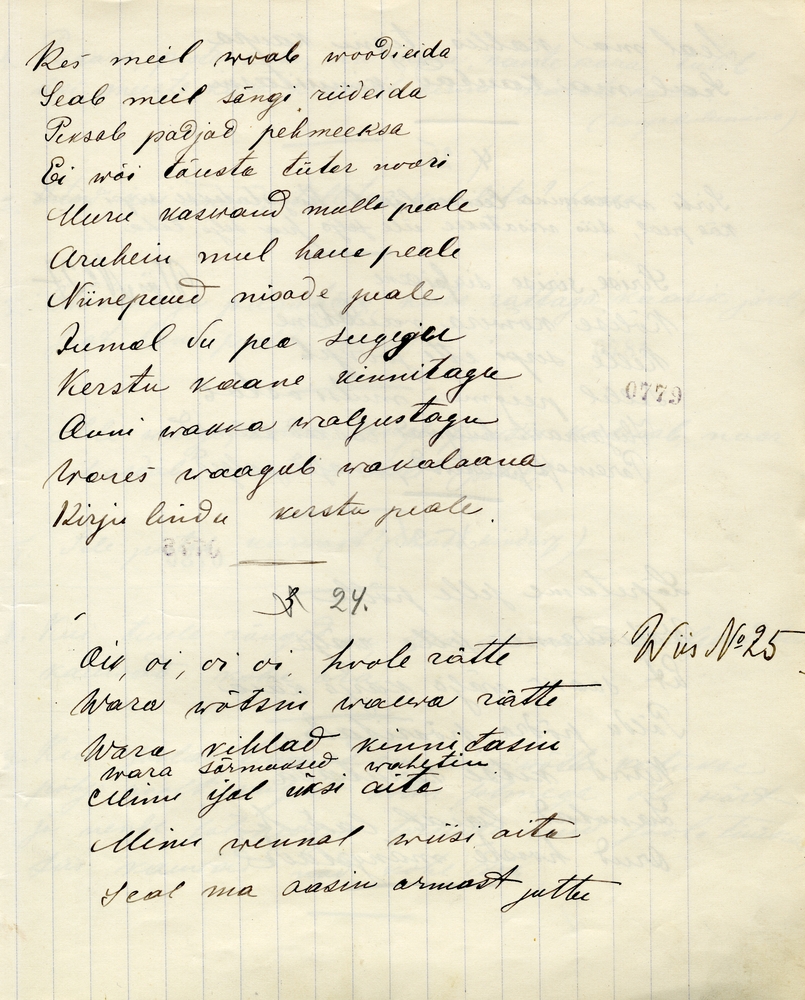 Kes meil woab woodieida
Seab meil sängi riideida
Peksab padjad pehmeeksa
Ei wõi tõusta tütar noori
Muru kaswand mulla peale
Aruhein mul haua peale
Niinepuud nisade peale
Jumal su pea sugegu
Kerstu kaane kinnitagu
Anni wakka walgustagu
Wares waagub wakalaana
Kirju lindu kerstu peale.
0779
24.
Oi, oi, oi oi, hoole rätte Wiis No 25
Wara wõtsin wauwa rätte
Wara kihlad kinnitasin
wara sõrmuksed wahetin
Minu isal üksi aita
Minu wennal wiisi aita
Seal ma aasin armast juttu